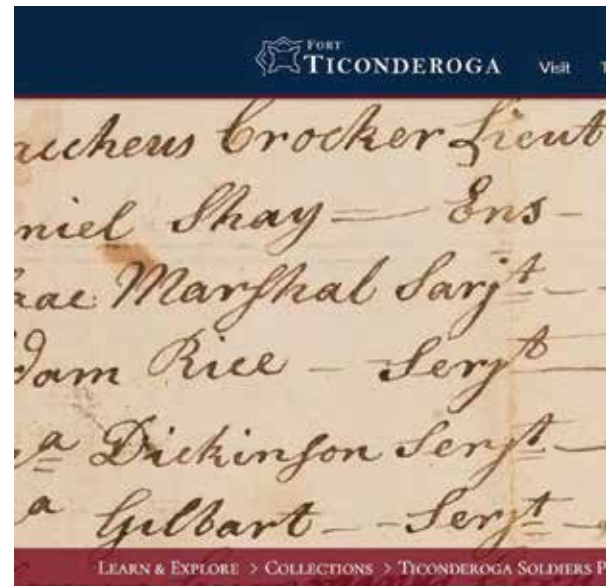 FORT
TICONDEROGA
Visit T
ucheus Crocker Lieut
niel Shay = Ens -
aac Marshal Sarjt - -
dam Rice - Serjt
a Dickinson Serjt -
a Gilbart - - Serjt -
LEARN & EXPLORE > COLLECTIONS > TICONDEROGA SOLDIERS P